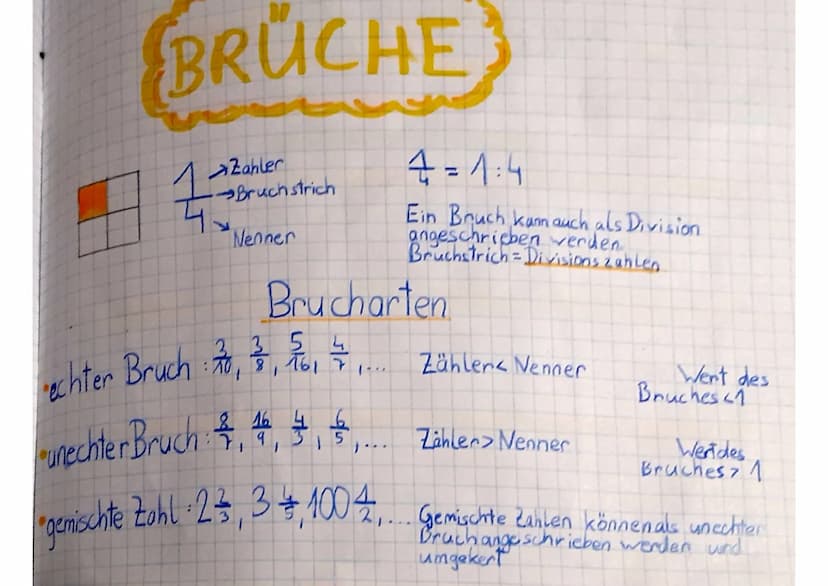 BRÜCHE
1/4 → Zähler
→ Bruchstrich
→ Nenner
1/4 = 1:4
Ein Bruch kann auch als Division
angeschrieben werden.
Bruchstrich = Divisionszahlen
Brucharten
• echter Bruch: 3/10, 3/8, 5/16, 4/7, ... Zähler < Nenner Wert des
Bruches < 1
• unechter Bruch: 8/7, 16/9, 4/3, 6/5, ... Zähler > Nenner Wert des
Bruches > 1
• gemischte Zahl: 2 2/3, 3 4/5, 100 1/2, ... Gemischte Zahlen können als unechter
Bruch angeschrieben werden und
umgekert